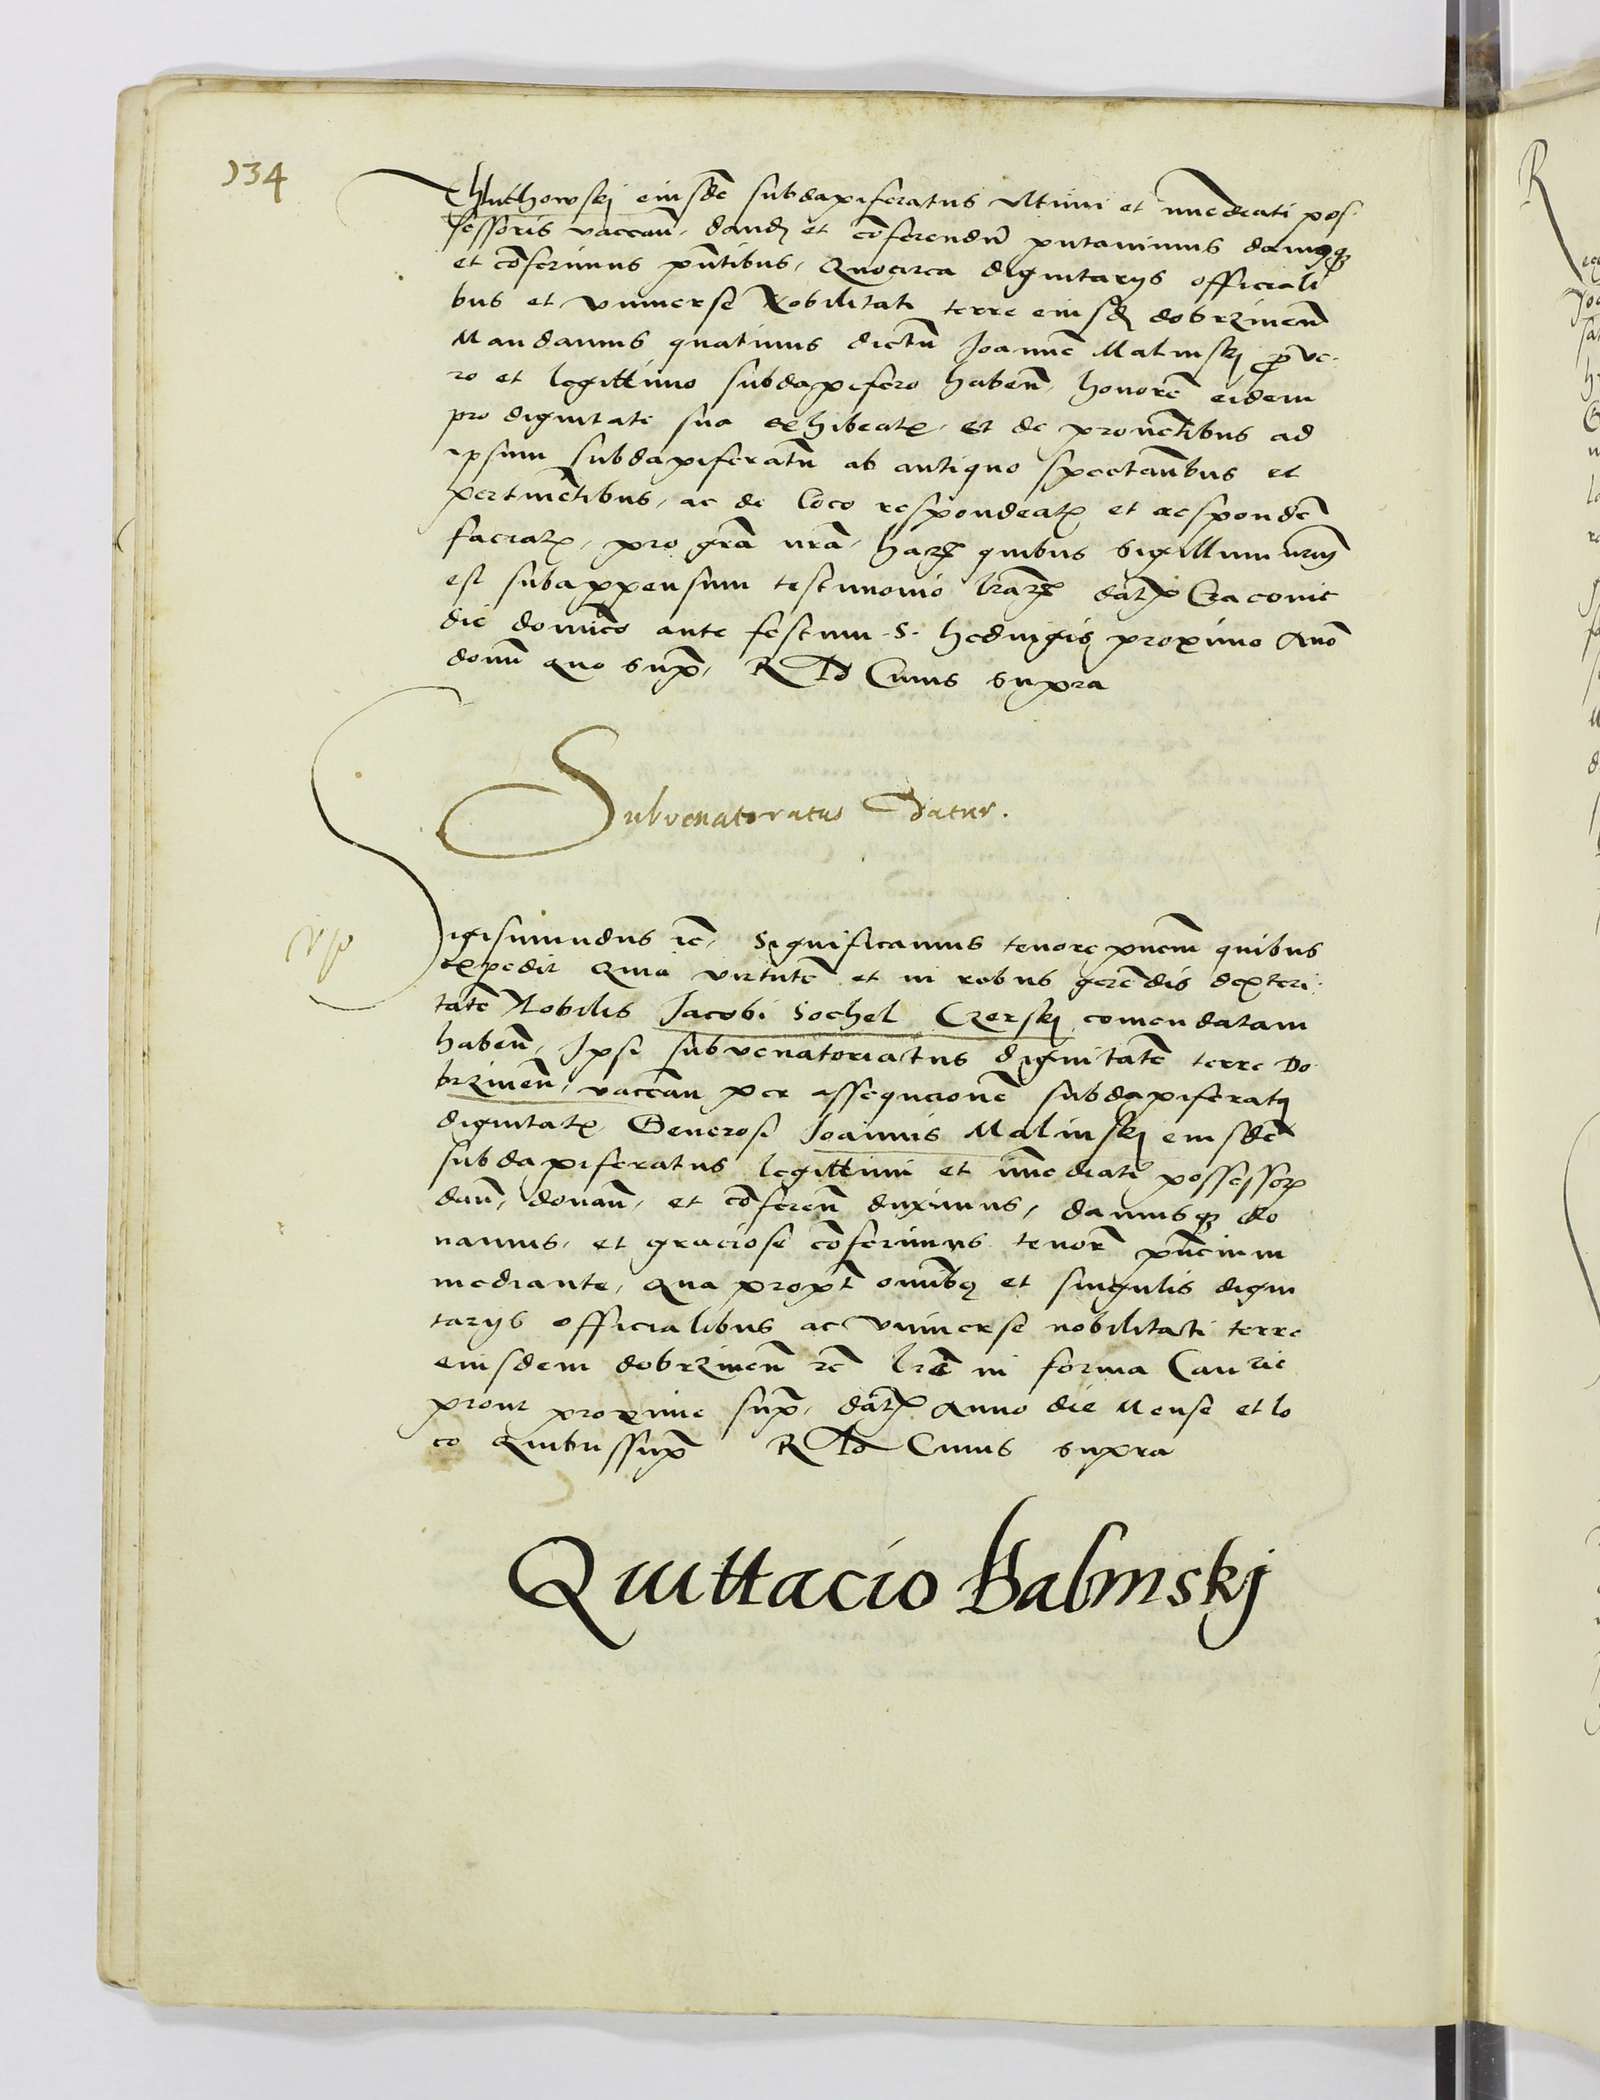 134
Chuthowskj eiusdē subdapiferatus vltimi et īmediati pos-
sessoris vaccan̄, dand et cōferendū putauimus damusq3
et cōferimus pn̄tibus, Quocirca dignitarijs officiali
bus et vniuerse Nobilitati terre eiusd dobrzinen̄
Mandamus quatinus dictū Joannē Malinskj p̄ ve-
ro et legittimo subdapifero haben̄, honorē eidem
pro dignitate sua exhibeat, et de prouētibus ad
ipsum subdapiferatū ab antiquo spectan̄bus et
pertinētibus, ac de loco respondeat et respondē
faciat, pro grā nrā, har quibus sigillum nrm̄
est subappensum testimonio lrar dat Cracouie
die dominico ante festum S. hedwigis proximo Anō
domī quo sup̄, R Ad Cuius supra
Subvenatoratus Datur.
Sigismundus rc̄, Significamus tenore pn̄cium quibus
expedit Quia virtutē et in rebus gerēdis dexteri-
tatē Nobilis Jacobi Sochel Czerskj comendatam
haben̄, Ipsi subvenatoriatus dignitatē terre Do-
brzinen̄, vaccan̄ per assequcionē subdapiferatq
dignitat Generosi Joannis Malinskj eiusdē
subdapiferatus legittimi et īmediati possessor
dan̄, donan̄, et cōferen̄ duximus, damusq3 do
namus, et graciose cōferimus tenor̄ pn̄cium
mediante, Qua propt̄ omībq et singulis digni
tarijs officialibus ac vniuerse nobilitati terre
eiusdem dobrzinen̄ rc̄ lrē in forma Cancrie
prout proxime sup̄, dat Anno die Mense et lo
co Quibussup̄ R Ad Cuius supra
Quittacio Balinskj